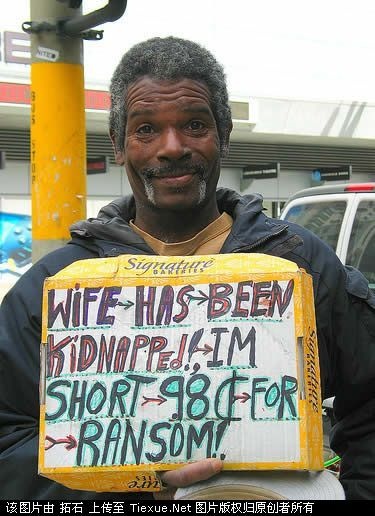 BUS STOP
Signature
BAKERIES
WIFE → HAS → BEEN
KIDNAPPED!! → IM
SHORT → 98¢ → FOR
→ RANSOM!
Signature
该图片由 拓石 上传至 Tiexue.Net 图片版权归原创者所有